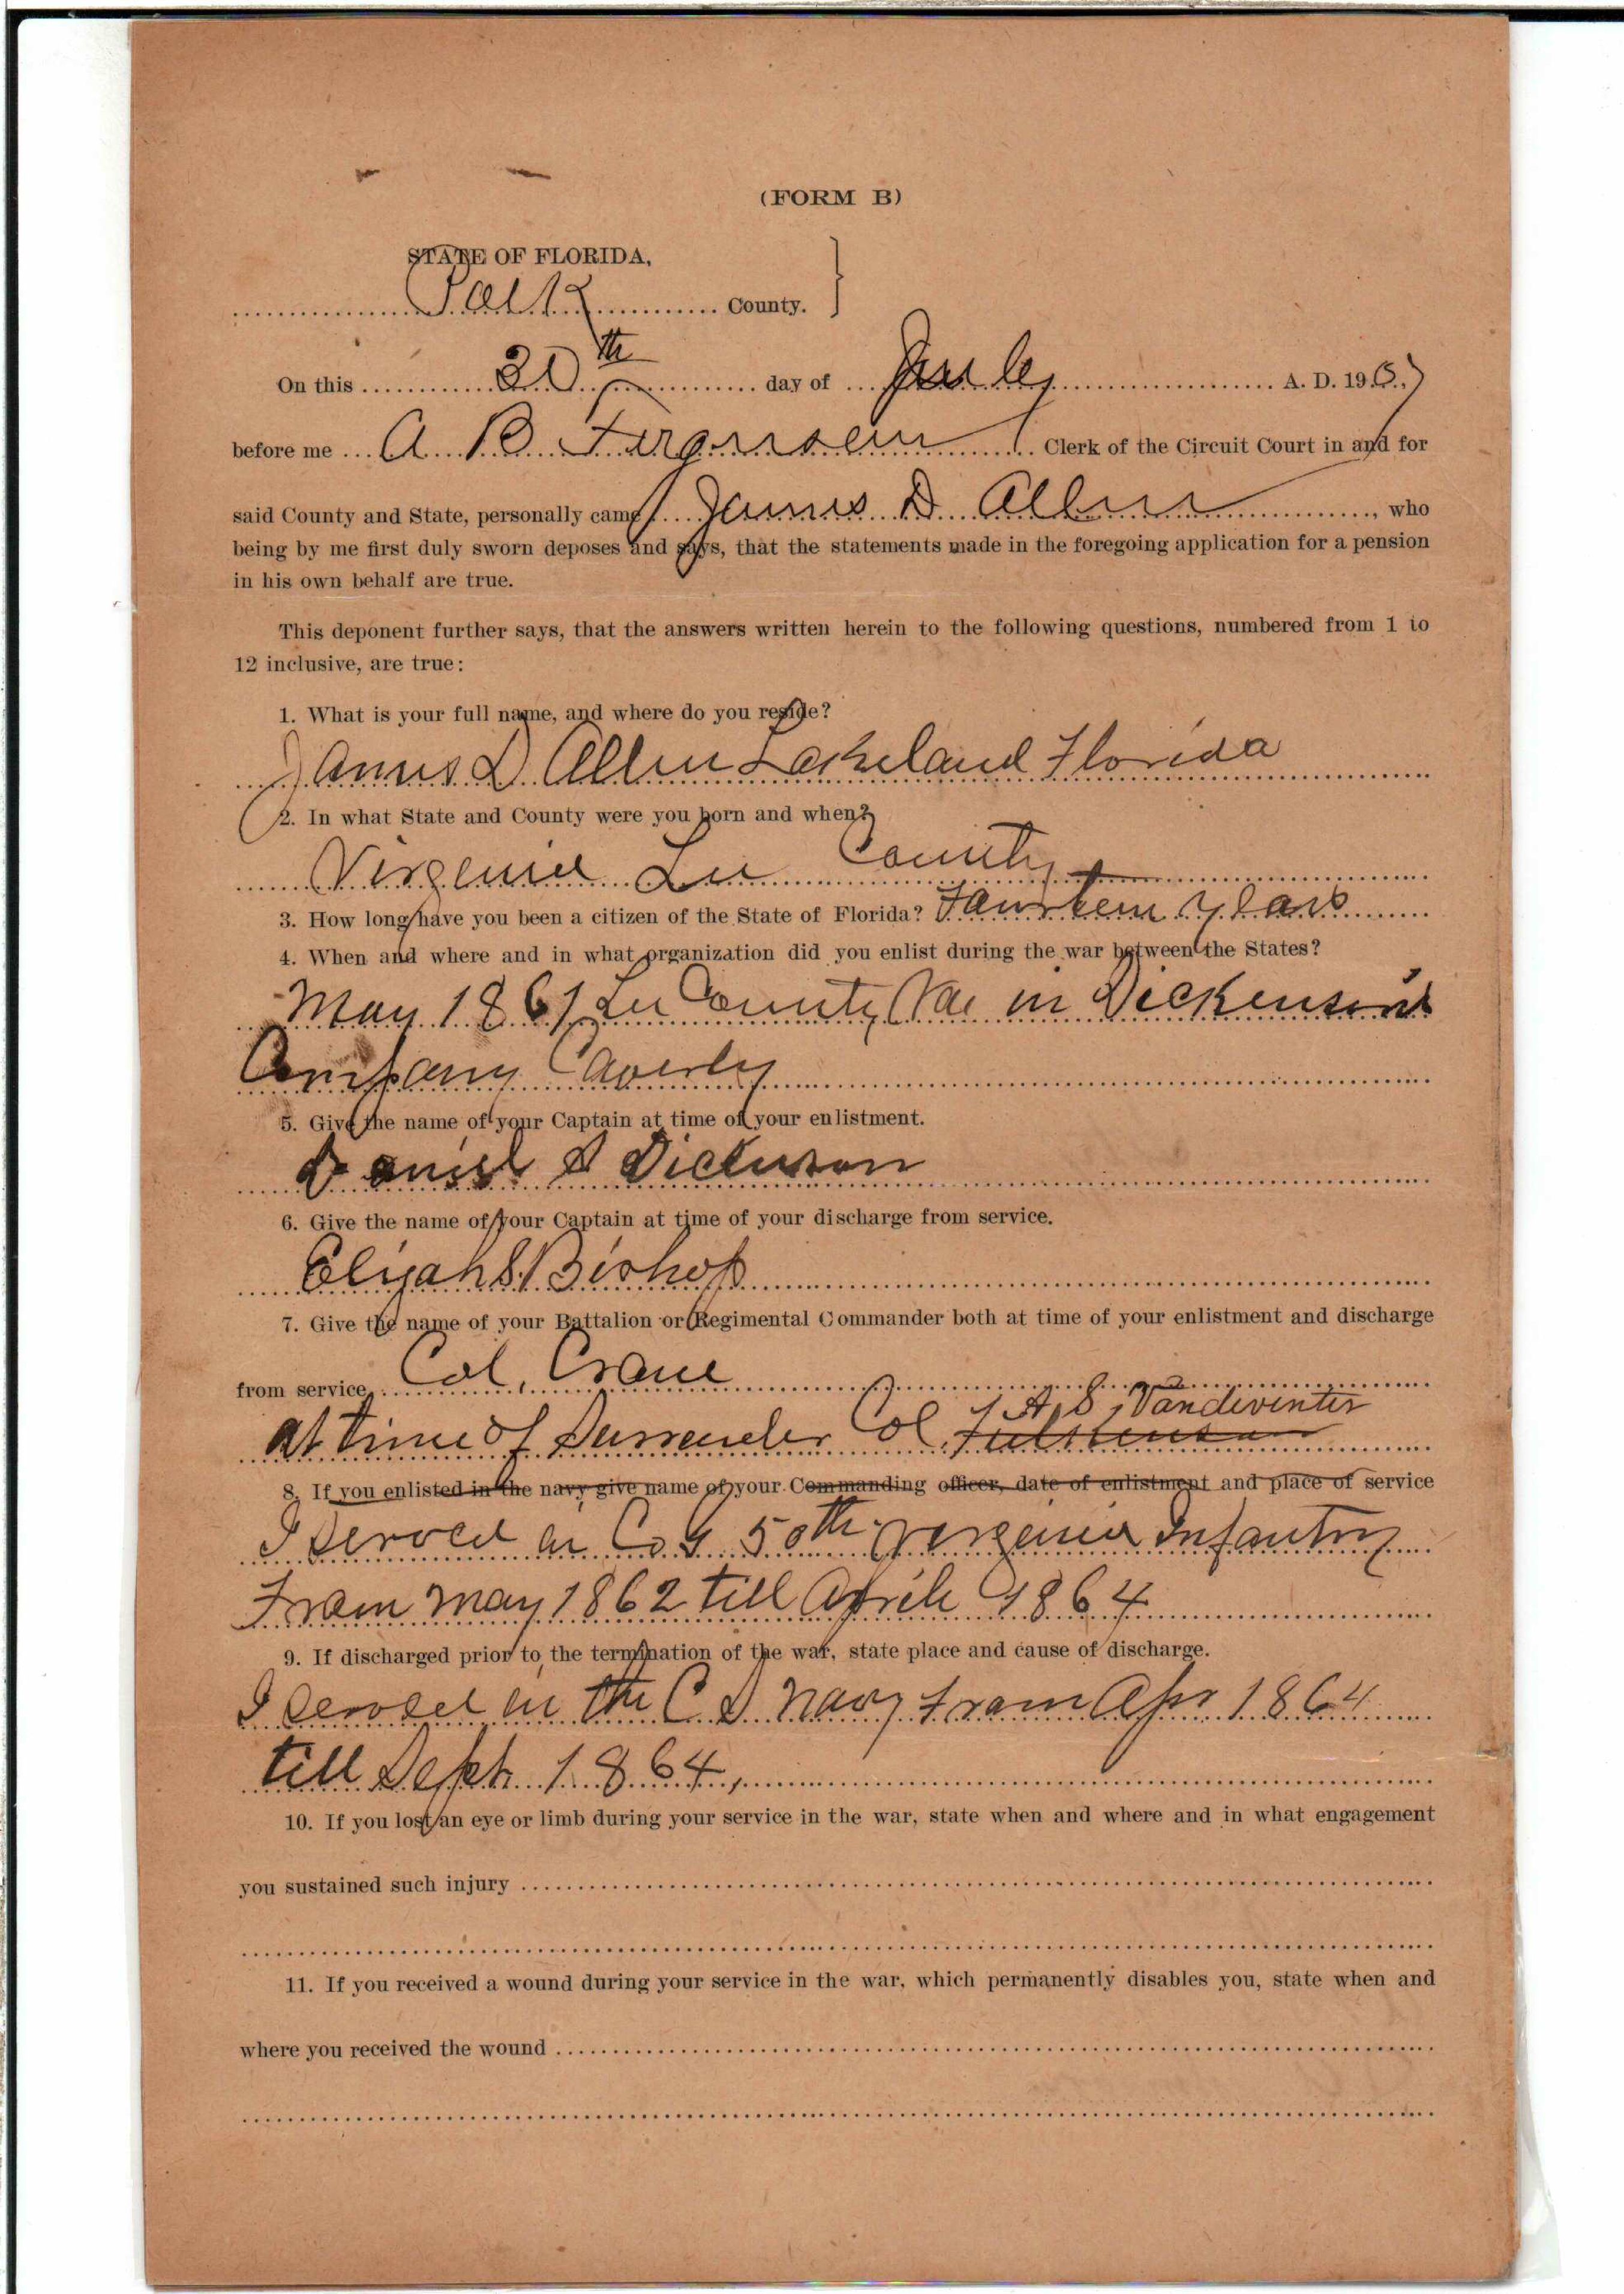 (FORM B)
STATE OF FLORIDA,
Polk County.
On this 30th day of July A. D. 1907
before me A B Ferguson Clerk of the Circuit Court in and for
said County and State, personally came James D Allen, who
being by me first duly sworn deposes and says, that the statements made in the foregoing application for a pension
in his own behalf are true.
This deponent further says, that the answers written herein to the following questions, numbered from 1 to
12 inclusive, are true:
1. What is your full name, and where do you reside?
James D Allen Lakeland Florida
2. In what State and County were you born and when?
Virginia Lee County
3. How long have you been a citizen of the State of Florida? Fourteen years
4. When and where and in what organization did you enlist during the war between the States?
May 1861 Lee County Va in Dickenson's
Company Caverly
5. Give the name of your Captain at time of your enlistment.
Daniel S Dickenson
6. Give the name of your Captain at time of your discharge from service.
Elijah S. Bishop
7. Give the name of your Battalion or Regimental Commander both at time of your enlistment and discharge
from service Col. Crane
A, S, Vandeventer
at time of Surrender Col
8. If you enlisted in the navy give name of your Commanding officer, date of enlistment and place of service
I Served in Co G 50th Virginia Infantry
From May 1862 till April 1864
9. If discharged prior to the termination of the war, state place and cause of discharge.
I Served in the C S Navy From Apr 1864
till Sept. 1864,
10. If you lost an eye or limb during your service in the war, state when and where and in what engagement
you sustained such injury
11. If you received a wound during your service in the war, which permanently disables you, state when and
where you received the wound